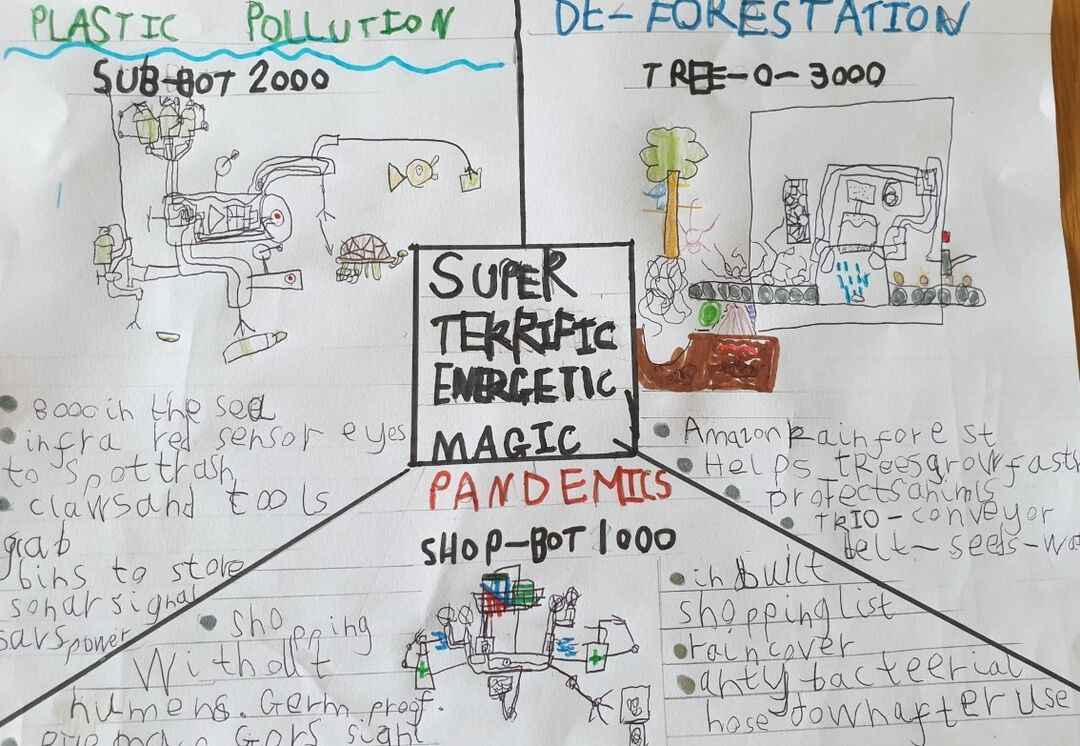 PLASTIC POLLUTION
SUB-BOT 2000
8000 in the sea
infra red sensor eyes
to spot trash
claws and tools
grab
bins to store
sonar signal
power
DE-FORESTATION
TREE-O-3000
Amazon Rainforest
Helps trees grow fast
protects animls
TRIO-conveyor
belt-seeds-wa
SUPER
TERRIFIC
ENERGETIC
MAGIC
PANDEMICS
SHOP-BOT 1000
shopping
Without
humens. Germ proof.
sight
in built
shopping list
raincover
anty bacteerial
hose down after use